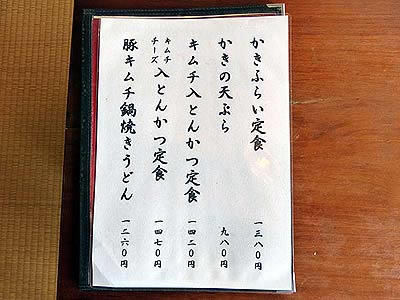 かきふらい定食 一三八〇円
かきの天ぷら 九八〇円
キムチ入とんかつ定食 一四二〇円
キムチチーズ入とんかつ定食 一四七〇円
豚キムチ鍋焼きうどん 一二六〇円